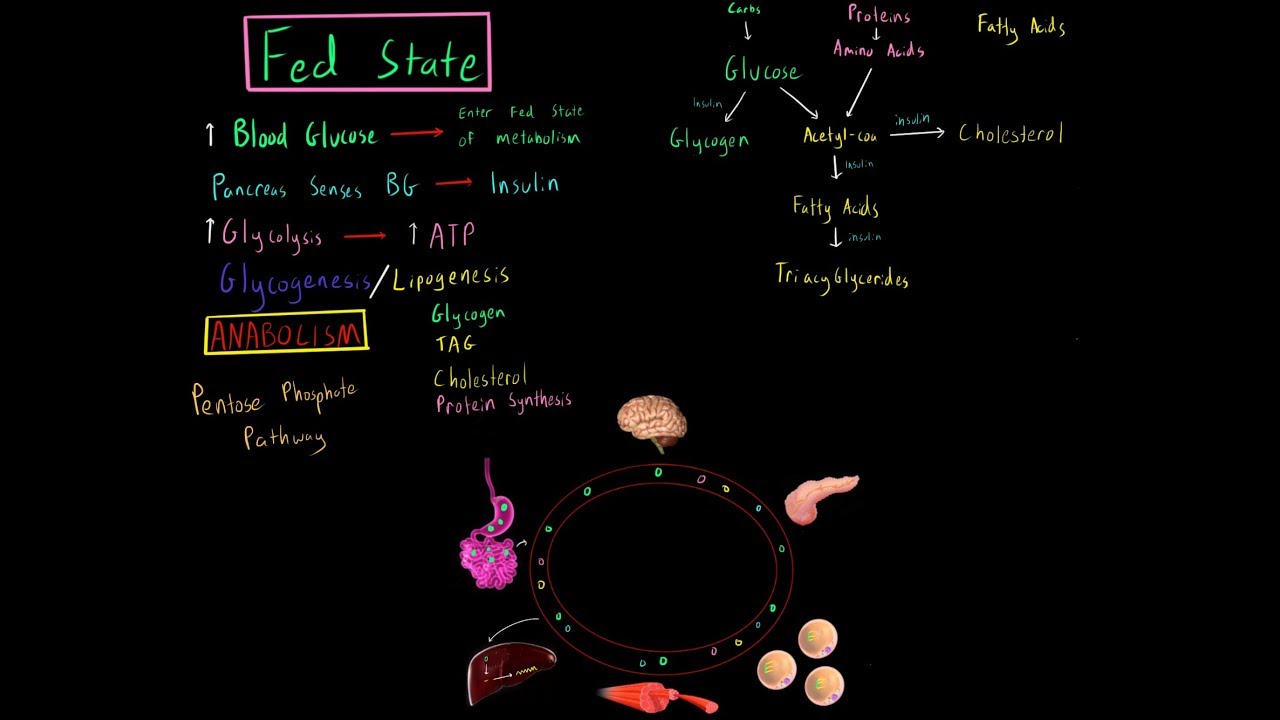 Fed State
↑ Blood Glucose → Enter Fed State
of metabolism
Pancreas Senses BG → Insulin
↑ Glycolysis → ↑ ATP
Glycogenesis / Lipogenesis
ANABOLISM
Glycogen
TAG
Cholesterol
Protein Synthesis
Pentose Phosphate
Pathway
Carbs
Proteins
Fatty Acids
Amino Acids
Glucose
Insulin
Glycogen
Acetyl-coa
insulin
Cholesterol
Insulin
Fatty Acids
insulin
TriacyGlycerides